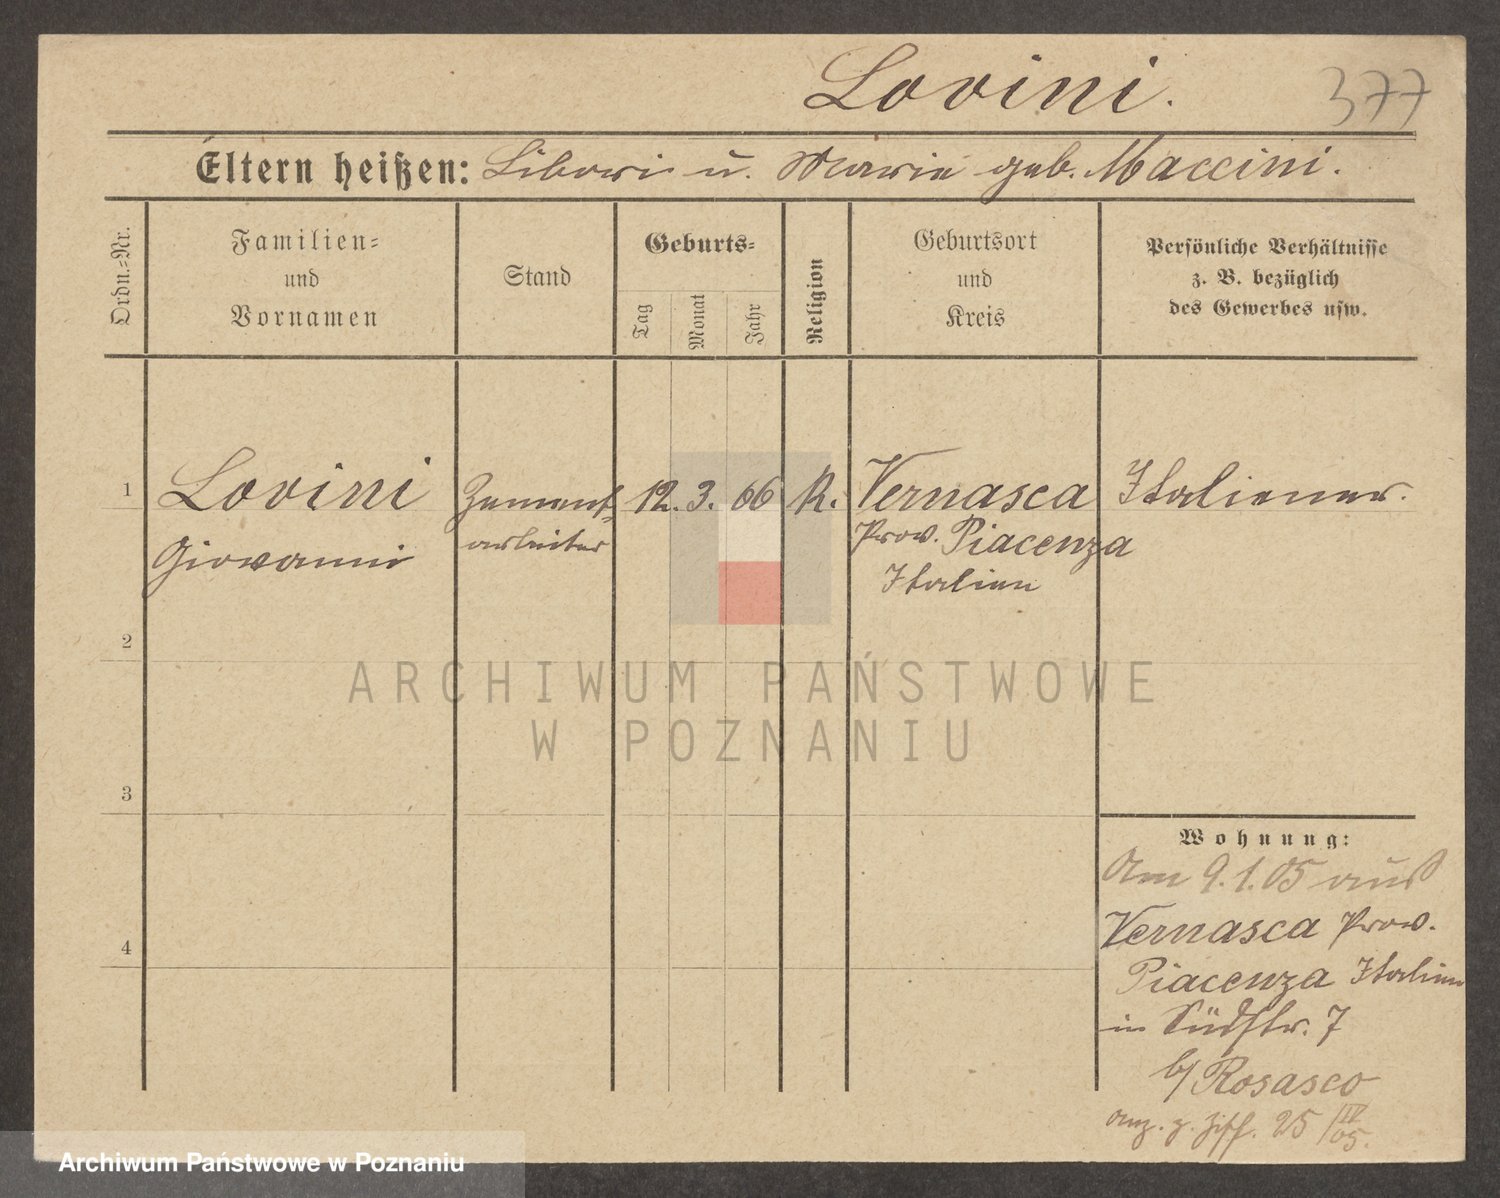 Lovini.
377
Eltern heißen: Libori u. Marie geb. Maccini.
Ordn.-Nr.
Familien-
und
Vornamen
Stand
Geburts-
Tag
Monat
Jahr
Religion
Geburtsort
und
Kreis
Persönliche Verhältnisse
z. B. bezüglich
des Gewerbes usw.
1
Lovini
Giovanni
Zement-
arbeiter
12. 3. 66
R.
Vernasca
Prov. Piacenza
Italien
Italiener.
2
ARCHIWUM PAŃSTWOWE
W POZNANIU
3
4
Wohnung:
Am 9.1.05 aus
Vernasca Prov.
Piacenza Italien
in Südstr. 7
b/ Rosasco
anz. z. Ziff. 25/IV 05.
Archiwum Państwowe w Poznaniu